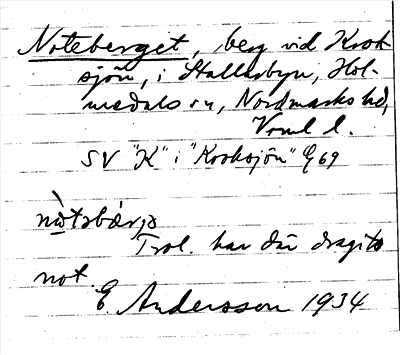 Noteberget, berg vid Krok-
sjön, i Stallarbyn, Hol-
medals sn, Nordmarks hd,
Vrml l.
SV "K" i "Kroksjön" E 69
nò̀təbàrjə
Trol. har där dragits
not.
E. Andersson 1934